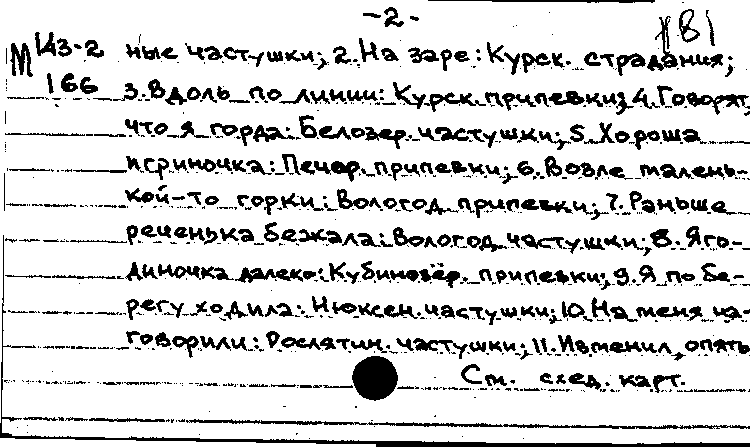 -2-
181
М143-2 ные частушки; 2. На заре: Курск. страдания;
166 3. Вдоль по линии: Курск. припевки; 4. Говорят,
что я горда: Белозер. частушки; 5. Хороша
игриночка: Печер. припевки; 6. Возле малень-
кой-то горки: Вологод. припевки; 7. Раньше
реченька бежала: Вологод. частушки; 8. Яго-
диночка далеко: Кубинозёр. припевки; 9. Я по бе-
регу ходила: Нюксен. частушки; 10. На меня на-
говорили: Рослятин. частушки; 11. Изменил, опять
См. след. карт.